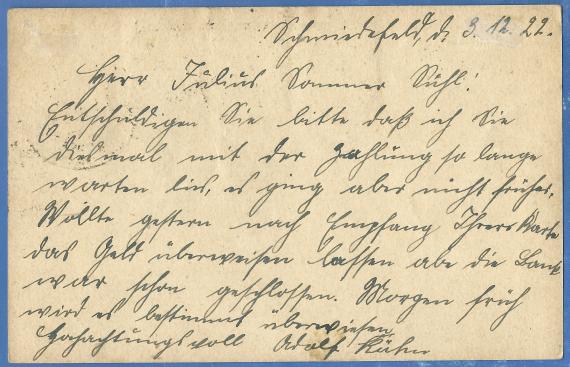 Schmiedefeld, d. 3.12.22.
Herr Julius Sommer Suhl!
Entschuldigen Sie bitte daß ich Sie
diesmal mit der Zahlung so lange
warten lies, es ging aber nicht früher.
Wollte gestern nach Empfang Ihrers Karte
das Geld überweisen lassen abe die Bank
war schon geschlossen. Morgen früh
wird es bestimmt überwiesen
Hochachtungsvoll Adolf Kühn